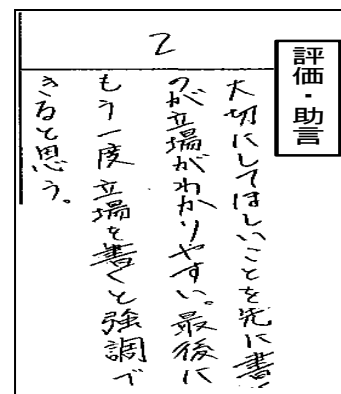 評価・助言
2
大切にしてほしいことを先に書い
のが立場がわかりやすい。最後に
もう一度立場を書くと強調で
きると思う。